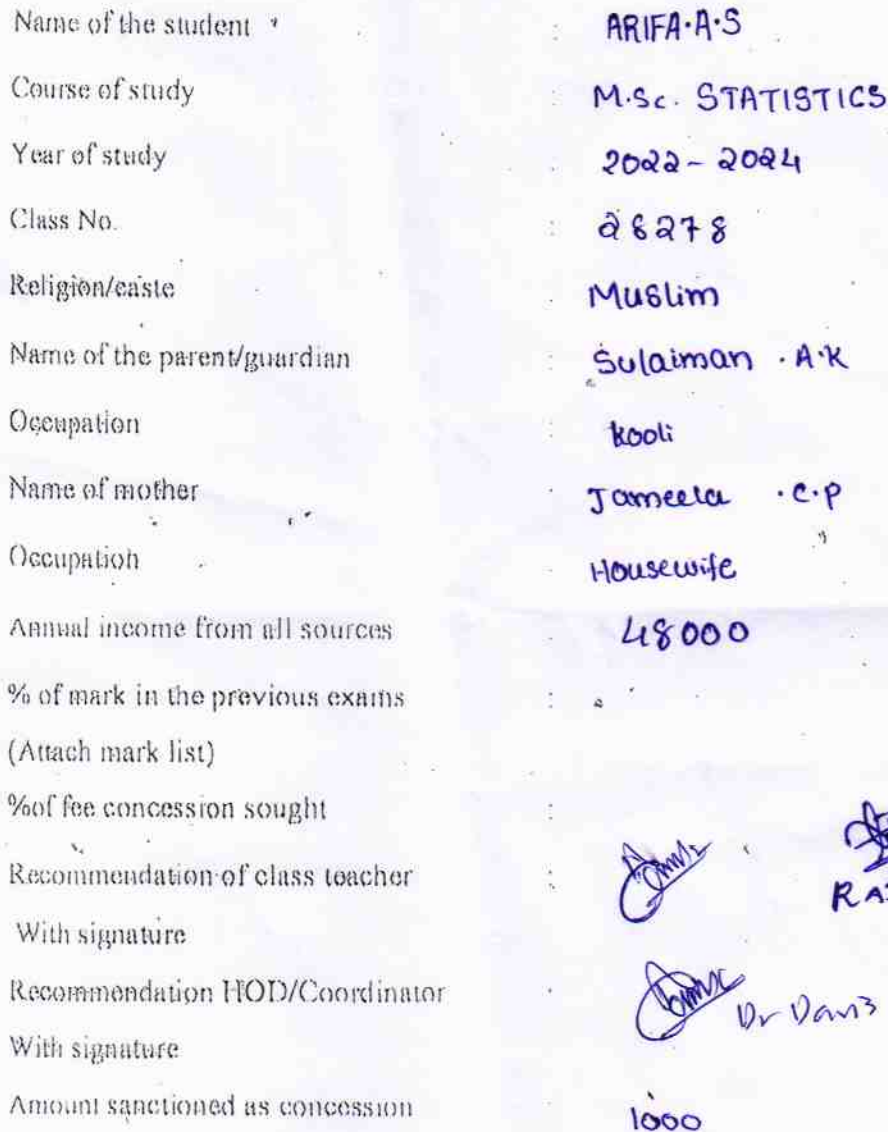 Name of the student : ARIFA.A.S
Course of study : M.Sc. STATISTICS
Year of study : 2022-2024
Class No. : 28278
Religion/caste Muslim
Name of the parent/guardian : Sulaiman . A.K
Occupation : kooli
Name of mother : Jameela . C.P
Occupation : Housewife
Annual income from all sources 48000
% of mark in the previous exams :
(Attach mark list)
%of fee concession sought :
Recommendation of class teacher :
With signature
Recommendation HOD/Coordinator : Dr Davis
With signature
Amount sanctioned as concession 1000